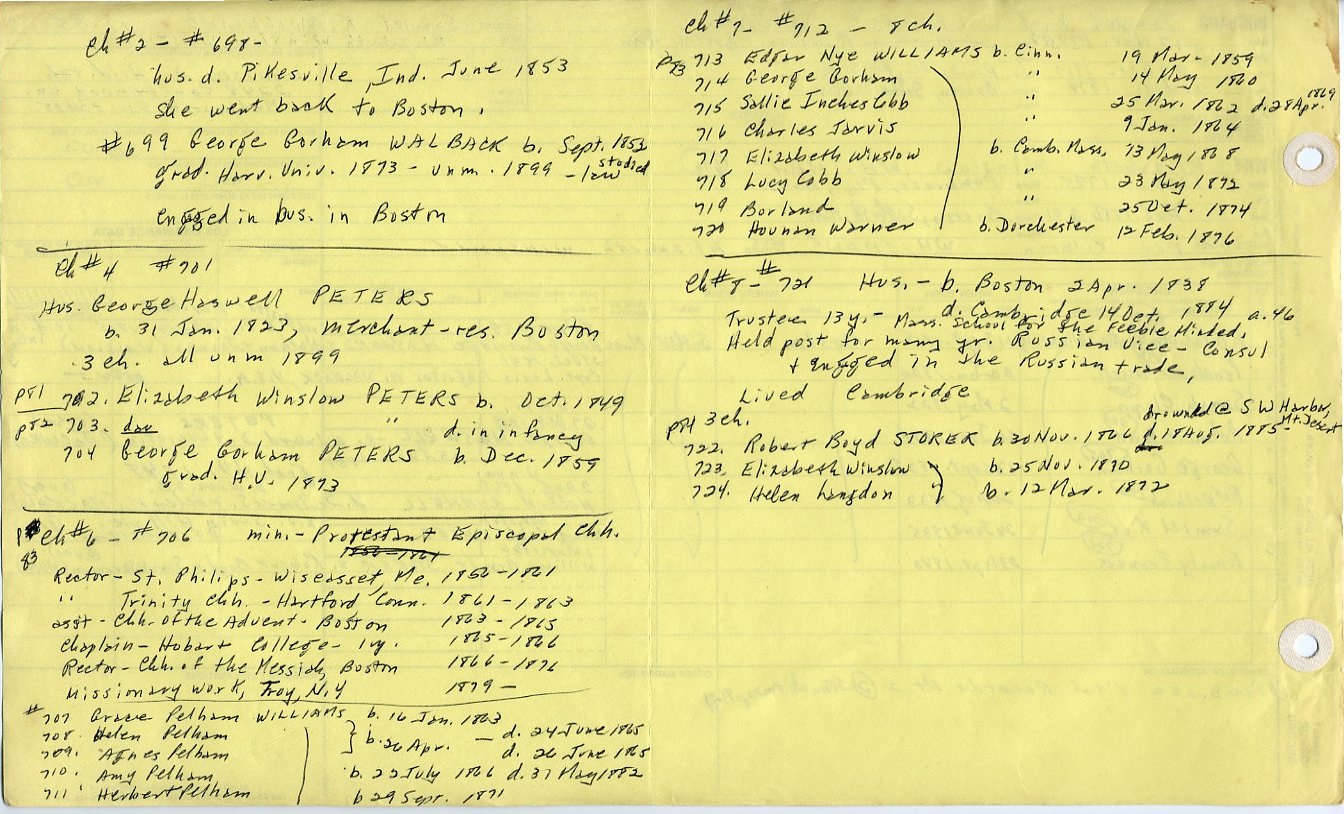 Ch #2 - #698 -
hus. d. Pikesville, Ind. June 1853
She went back to Boston.
#699 George Gorham WALBACK b. Sept. 1852
grad. Harv. Univ. 1873 - unm. 1899 - studied law
engged in bus. in Boston
Ch #4 #701
Hus. George Haswell PETERS
b. 31 Jan. 1823, merchant - res. Boston
3 ch. all unm 1899
p81 702. Elizabeth Winslow PETERS b. Oct. 1849
p82 703. dau " d. in infancy
704 George Gorham PETERS b. Dec. 1859
grad. H.U. 1873
Ch #6 - #706 min. - Protestant Episcopal Chh.
83
Rector - St. Philips - Wiscasset, Me. 1856-1861
" Trinity Chh. - Hartford Conn. 1861-1863
asst - Chh. of the Advent - Boston 1863-1865
Chaplain - Hobart College - 1865-1866
Rector - Chh. of the Messiah, Boston 1866-1876
Missionary work, Troy, N.Y 1879 -
# 707 Gracie Pelham WILLIAMS b. 16 Jan. 1863
708. Helen Pelham } b. 26 Apr. - d. 24 June 1865
709. Agnes Pelham d. 26 June 1865
710. Amy Pelham b. 22 July 1866 d. 31 May 1882
711. Herbert Pelham b 29 Sept. 1871
Ch #7 - #712 - 8 ch.
p83 713 Edgar Nye WILLIAMS b. Cinn. 19 Mar - 1859
714 George Gorham " 14 May 1860
715 Sallie Inches Cobb " 25 Mar. 1862 d. 28 Apr. 1869
716 Charles Jarvis " 9 Jan. 1864
717 Elizabeth Winslow b. Camb. Mass. 13 May 1868
718 Lucy Cobb " 23 May 1872
719 Borland " 25 Oct. 1874
720 Warner b. Dorchester 12 Feb. 1876
Ch #8 - #721 Hus. - b. Boston 2 Apr. 1838
d. Cambridge 14 Oct. 1884 a. 46
Trustee 13 y. - Mass. School for the Feeble Minded,
Held post for many yr. Russian Vice - Consul
+ engged in the Russian trade,
Lived Cambridge
p84 3 ch.
722. Robert Boyd STORER b. 30 Nov. 1866 d. 18 Aug. 1885 - drowned @ SW Harbor, Mt. Desert
723. Elizabeth Winslow } b. 25 Nov. 1870
724. Helen Langdon " b. 12 Mar. 1872